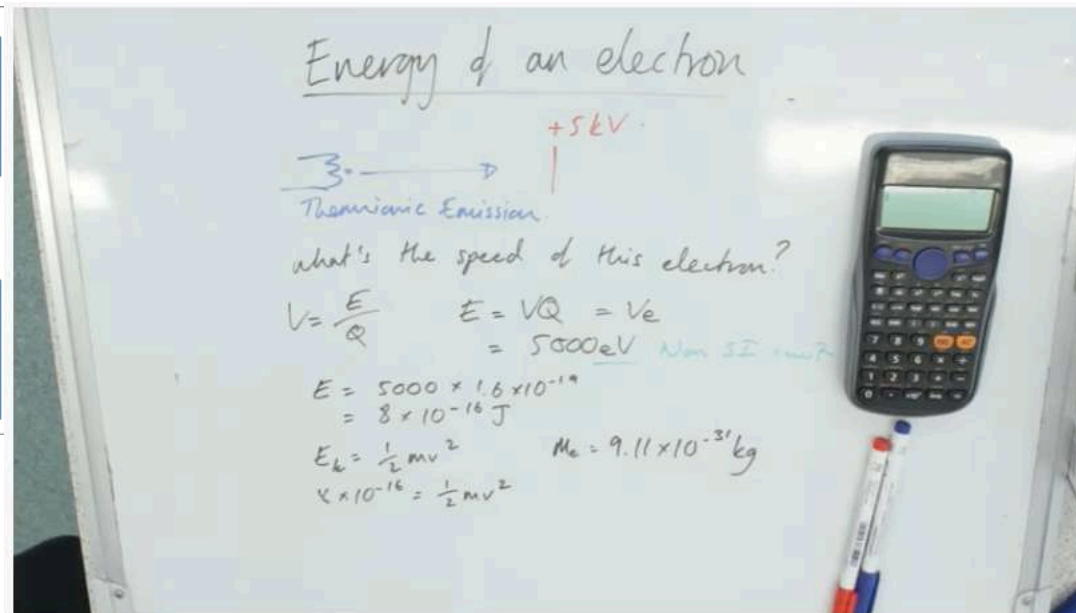 Energy of an electron
+5kV
Thermionic Emission.
what's the speed of this electron?
V = E/Q E = VQ = Ve
= 5000eV Non SI
E = 5000 × 1.6 × 10⁻¹⁹
= 8 × 10⁻¹⁶ J
Eₖ = ½ mv² Mₑ = 9.11 × 10⁻³¹ kg
8 × 10⁻¹⁶ = ½ mv²
7 8 9
4 5 6 × ÷
1 2 3 + -
0